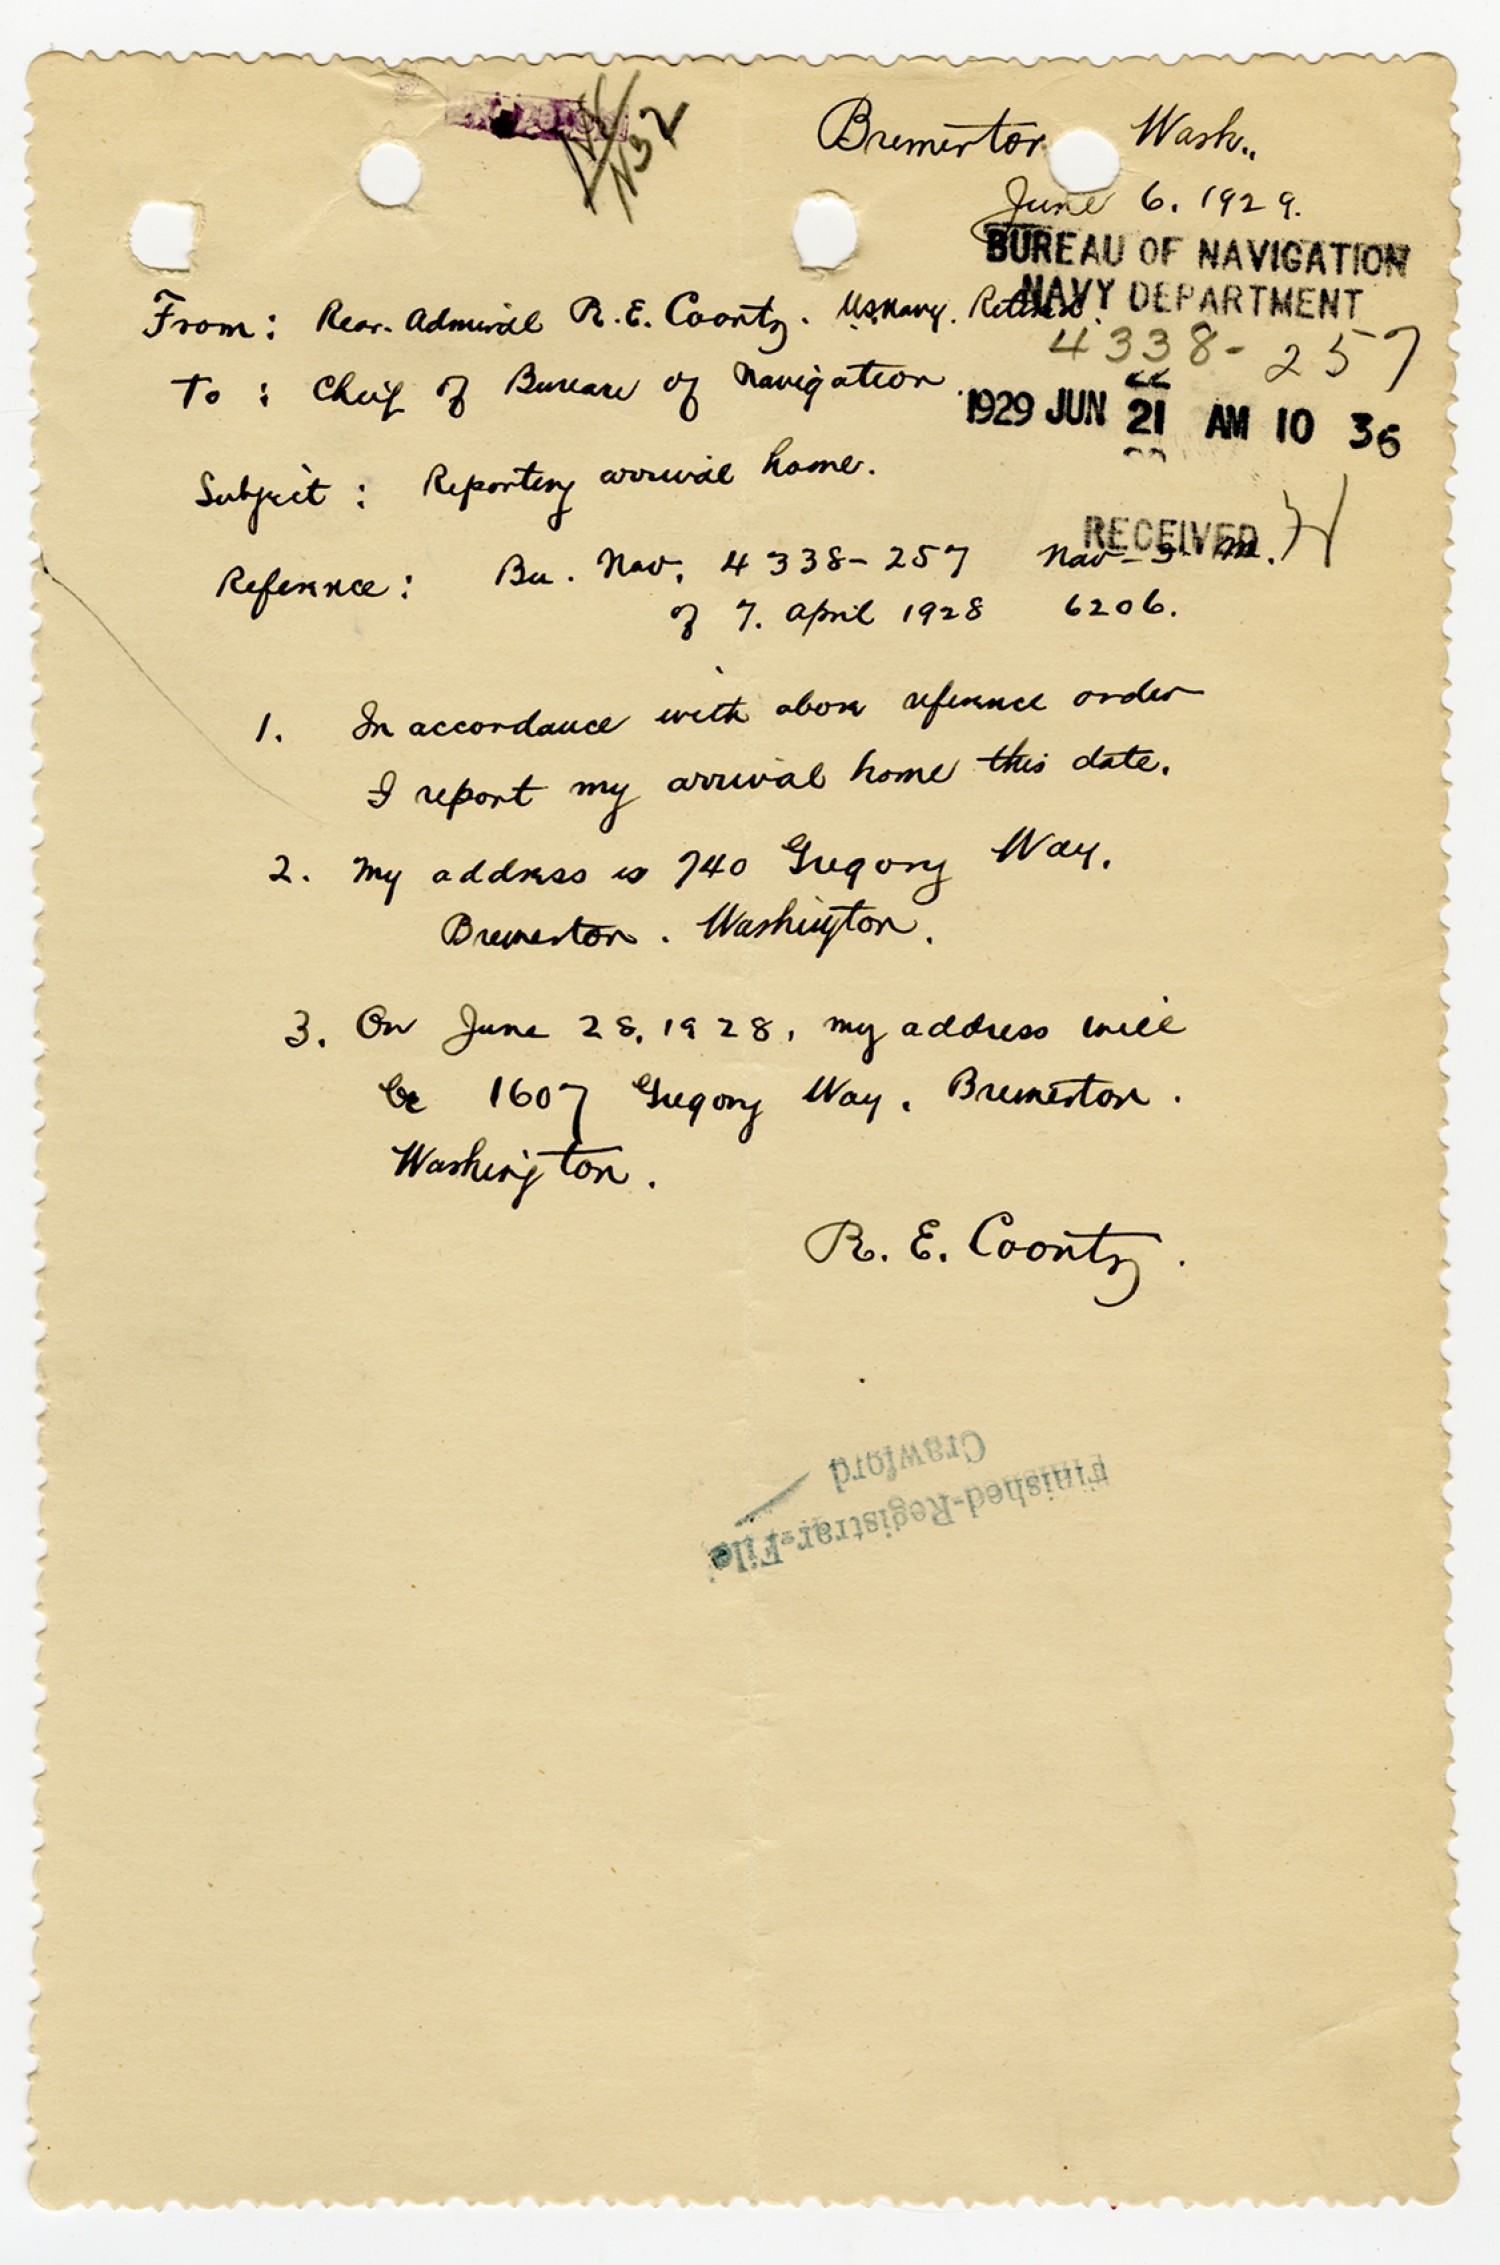 N32
Bremerton Wash.,
June 6. 1929.
BUREAU OF NAVIGATION
NAVY DEPARTMENT
From: Rear. Admiral R. E. Coontz. U.S. Navy. Retired.
4338-257
To : Chief of Bureau of Navigation.
1929 JUN 21 AM 10 36
Subject: Reporting arrival home.
RECEIVED
Reference: Bu. Nav. 4338-257 Nav-3-M.
of 7. April 1928 6206.
1. In accordance with above reference order
I report my arrival home this date.
2. My address is 740 Gregory Way.
Bremerton. Washington.
3. On June 28, 1928, my address will
be 1607 Gregory Way. Bremerton.
Washington.
R. E. Coontz.
Finished-Registrar-File
Crawford